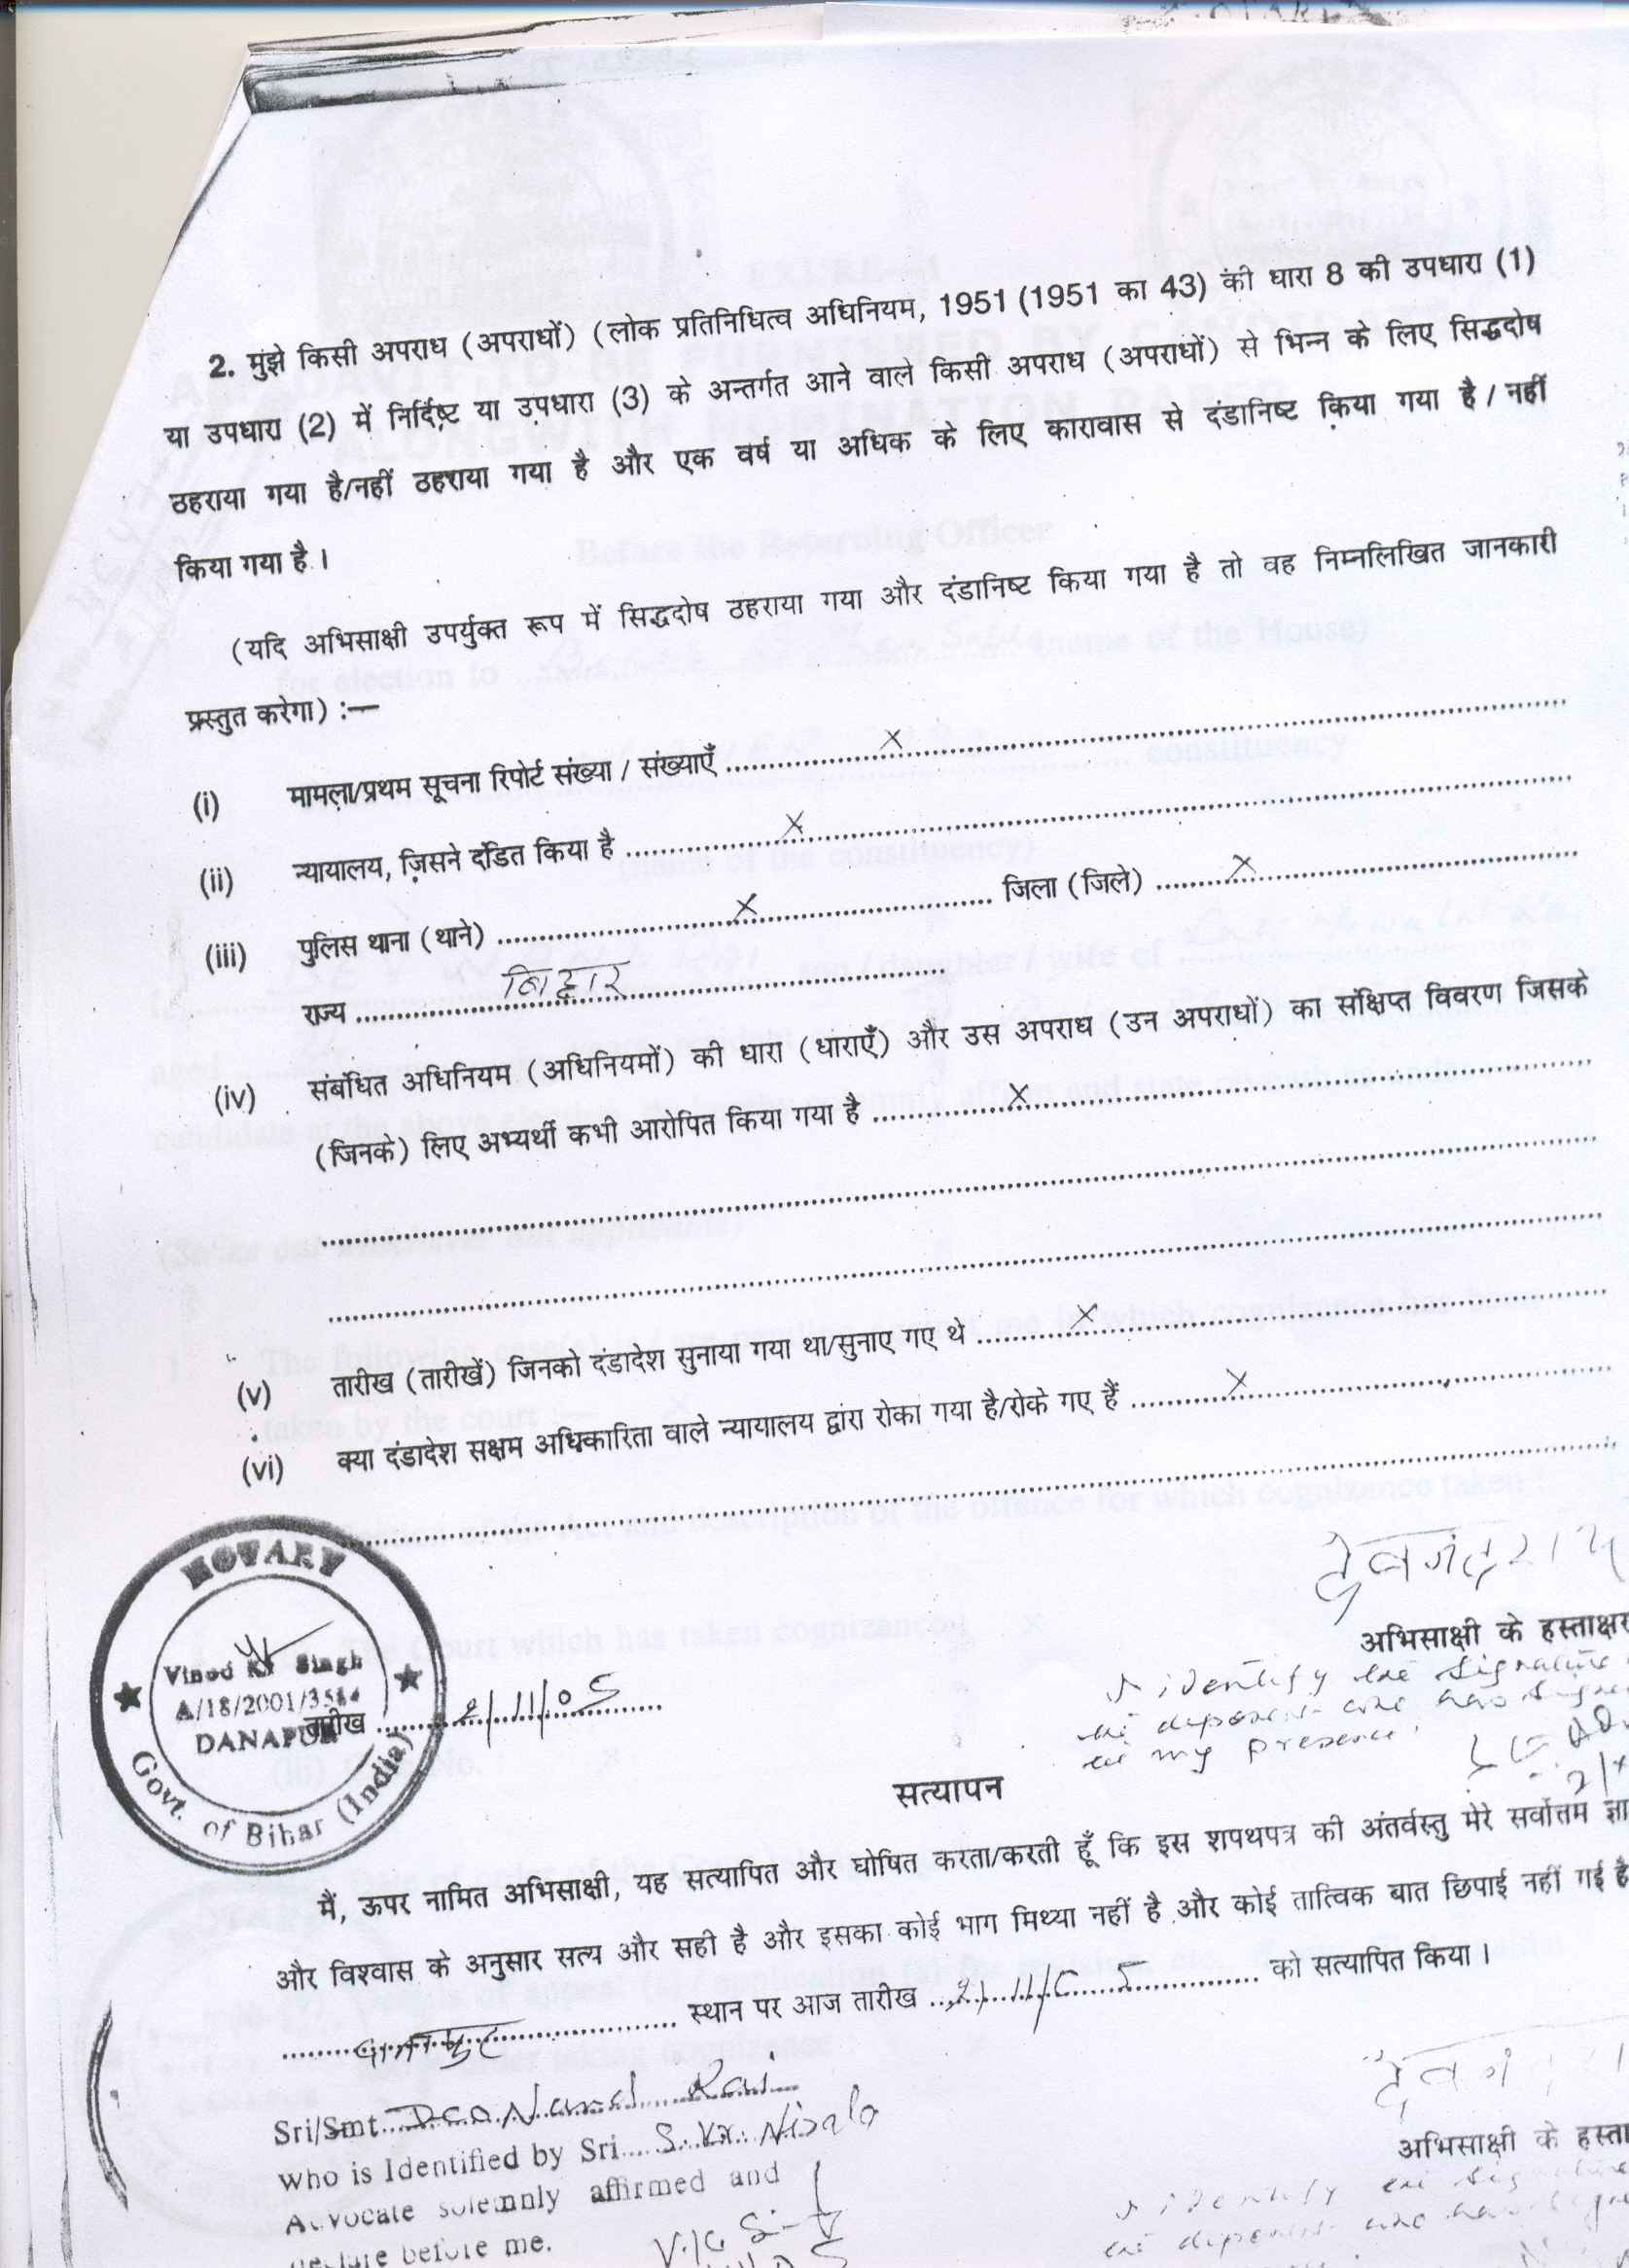 2. मुझे किसी अपराध (अपराधों) (लोक प्रतिनिधित्व अधिनियम, 1951 (1951 का 43) की धारा 8 की उपधारा (1)
या उपधारा (2) में निर्दिष्ट या उपधारा (3) के अन्तर्गत आने वाले किसी अपराध (अपराधों) से भिन्न के लिए सिद्धदोष
ठहराया गया है/नहीं ठहराया गया है और एक वर्ष या अधिक के लिए कारावास से दंडानिष्ट किया गया है / नहीं
किया गया है।
(यदि अभिसाक्षी उपर्युक्त रूप में सिद्धदोष ठहराया गया और दंडानिष्ट किया गया है तो वह निम्नलिखित जानकारी
प्रस्तुत करेगा) :—
(i) मामला/प्रथम सूचना रिपोर्ट संख्या / संख्याएँ ........ X ........
(ii) न्यायालय, जिसने दंडित किया है ........ X ........
(iii) पुलिस थाना (थाने) ........ X ........ जिला (जिले) ........ X ........
राज्य ........ बिहार ........
(iv) संबंधित अधिनियम (अधिनियमों) की धारा (धाराएँ) और उस अपराध (उन अपराधों) का संक्षिप्त विवरण जिसके
(जिनके) लिए अभ्यर्थी कभी आरोपित किया गया है ........ X ........
(v) तारीख (तारीखें) जिनको दंडादेश सुनाया गया था/सुनाए गए थे ........ X ........
(vi) क्या दंडादेश सक्षम अधिकारिता वाले न्यायालय द्वारा रोका गया है/रोके गए हैं ........ X ........
अभिसाक्षी के हस्ताक्षर
I identify the signature
the deponent who has
in my presence.
NOTARY
Vinod Kr Singh
A/18/2001/3584
DANAPUR
Govt. of Bihar (India)
तारीख ........ 2/11/05 ........
सत्यापन
मैं, ऊपर नामित अभिसाक्षी, यह सत्यापित और घोषित करता/करती हूँ कि इस शपथपत्र की अंतर्वस्तु मेरे सर्वोत्तम ज्ञा
और विश्वास के अनुसार सत्य और सही है और इसका कोई भाग मिथ्या नहीं है और कोई तात्विक बात छिपाई नहीं गई है
........ स्थान पर आज तारीख ........ 2/11/05 ........ को सत्यापित किया।
Sri/Smt. Deo Nand Rai
who is Identified by Sri
Advocate solemnly affirmed and
declare before me.
अभिसाक्षी के हस्ता